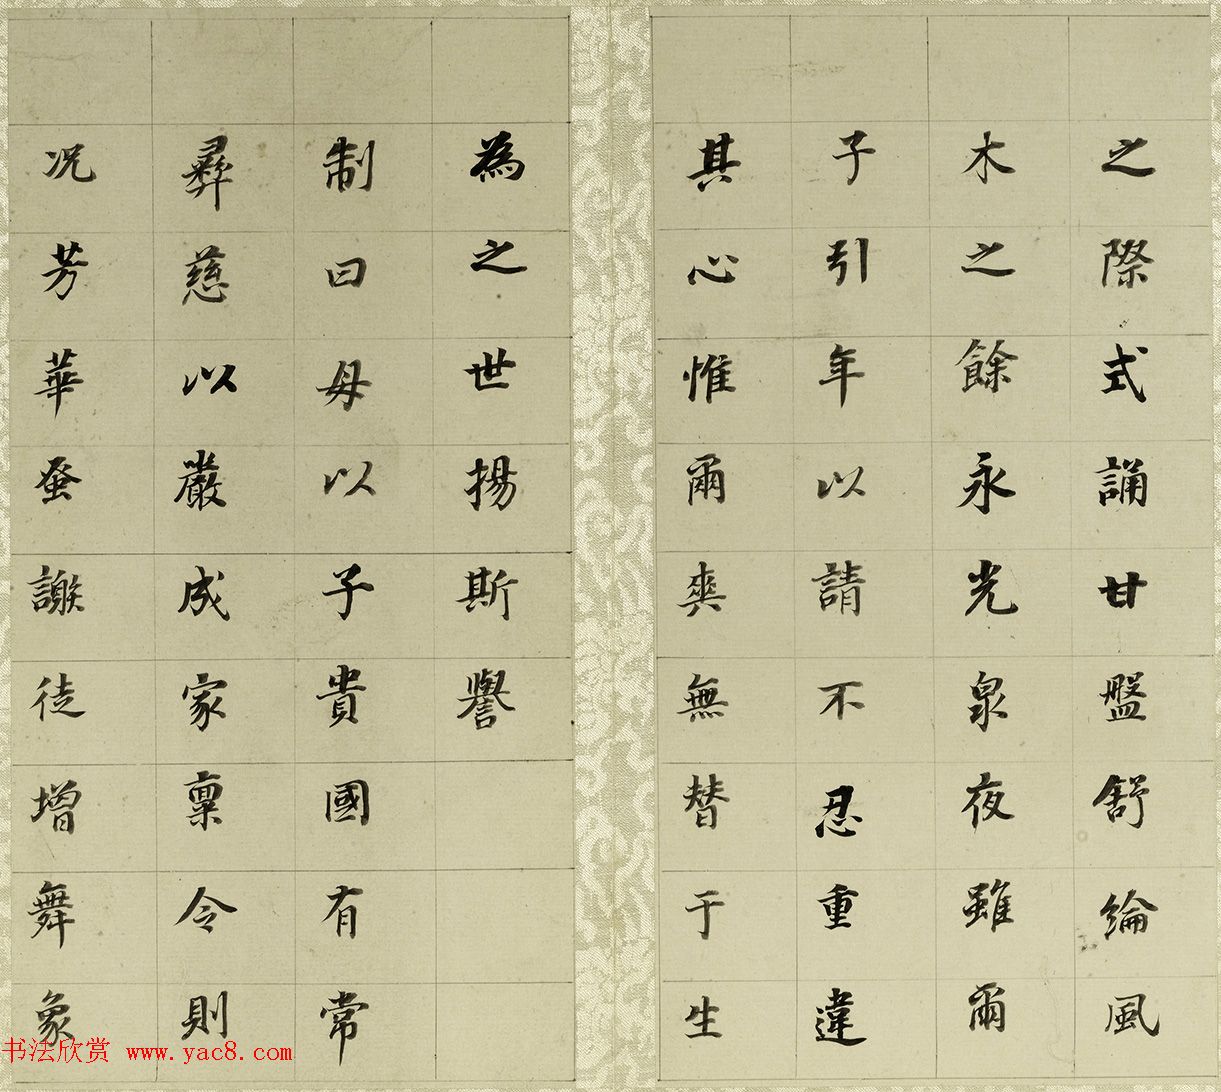 之際式誦甘盤舒綸風
木之餘永光泉夜雖爾
子引年以請不忍重違
其心惟爾爽無替于生
為之世揚斯譽
制曰母以子貴國有常
彝慈以嚴成家稟令則
况芳華蚤謝徒增舞象
书法欣赏 www.yac8.com